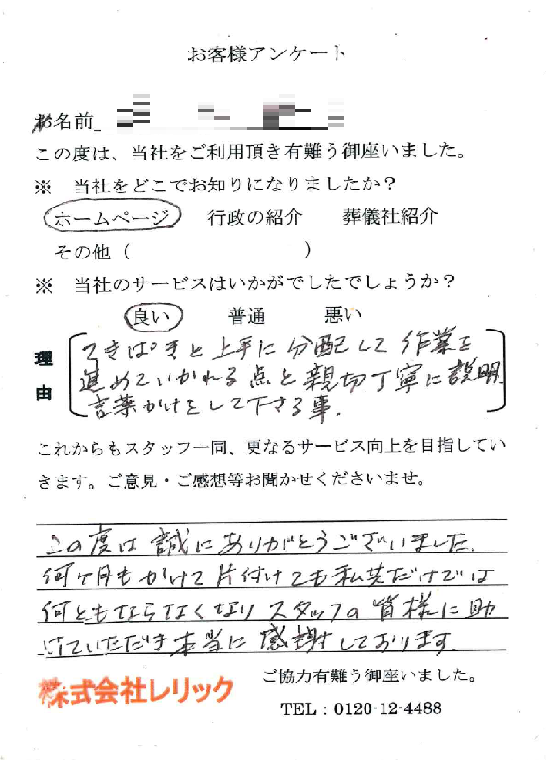 お客様アンケート
お名前
この度は、当社をご利用頂き有難う御座いました。
※ 当社をどこでお知りになりましたか？
ホームページ 行政の紹介 葬儀社紹介
その他（ ）
※ 当社のサービスはいかがでしたでしょうか？
良い 普通 悪い
理由
てきぱきと上手に分配して作業を
進めていかれる点と親切丁寧に説明
言葉かけをして下さる事.
これからもスタッフ一同、更なるサービス向上を目指してい
きます。ご意見・ご感想等お聞かせくださいませ。
この度は誠にありがとうございました.
何ヶ月もかけて片付けても私共だけでは
何ともならなくなりスタッフの皆様に助
けていただき本当に感謝しております.
ご協力有難う御座いました。
株式会社レリック
TEL：0120-12-4488